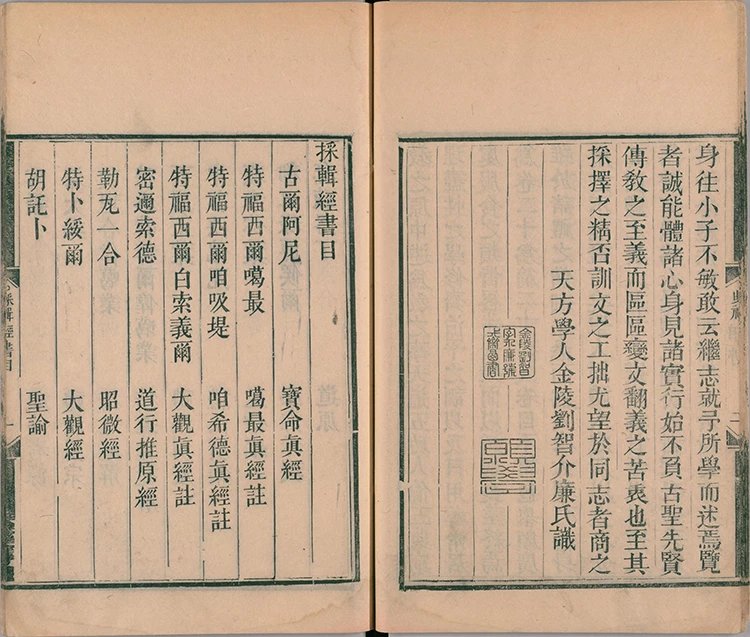 身往小子不敏敢云繼志就予所學而述焉覽
者誠能體諸心身見諸實行始不負古聖先賢
傳教之至義而區區變文翻義之苦衷也至其
採擇之精否訓文之工拙尤望於同志者商之
天方學人金陵劉智介廉氏識
採輯經書目
古爾阿尼 寶命真經
特福西爾噶最 噶最真經註
特福西爾咱吸堤 咱希德真經註
特福西爾白索義爾 大觀真經註
密邇索德 道行推原經
勒瓦一合 昭微經
特卜綏爾 大觀經
胡託卜 聖諭
採輯經書目 一